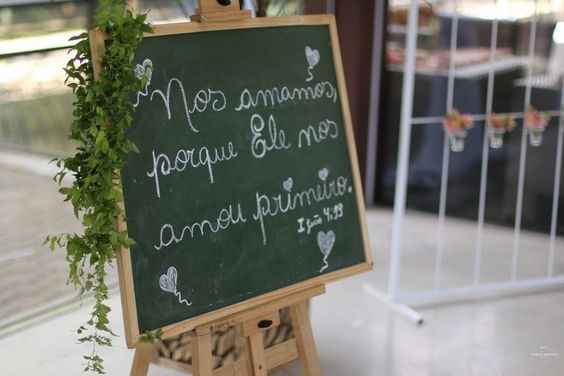 Nos amamos,
porque Ele nos
amou primeiro.
I João 4:19